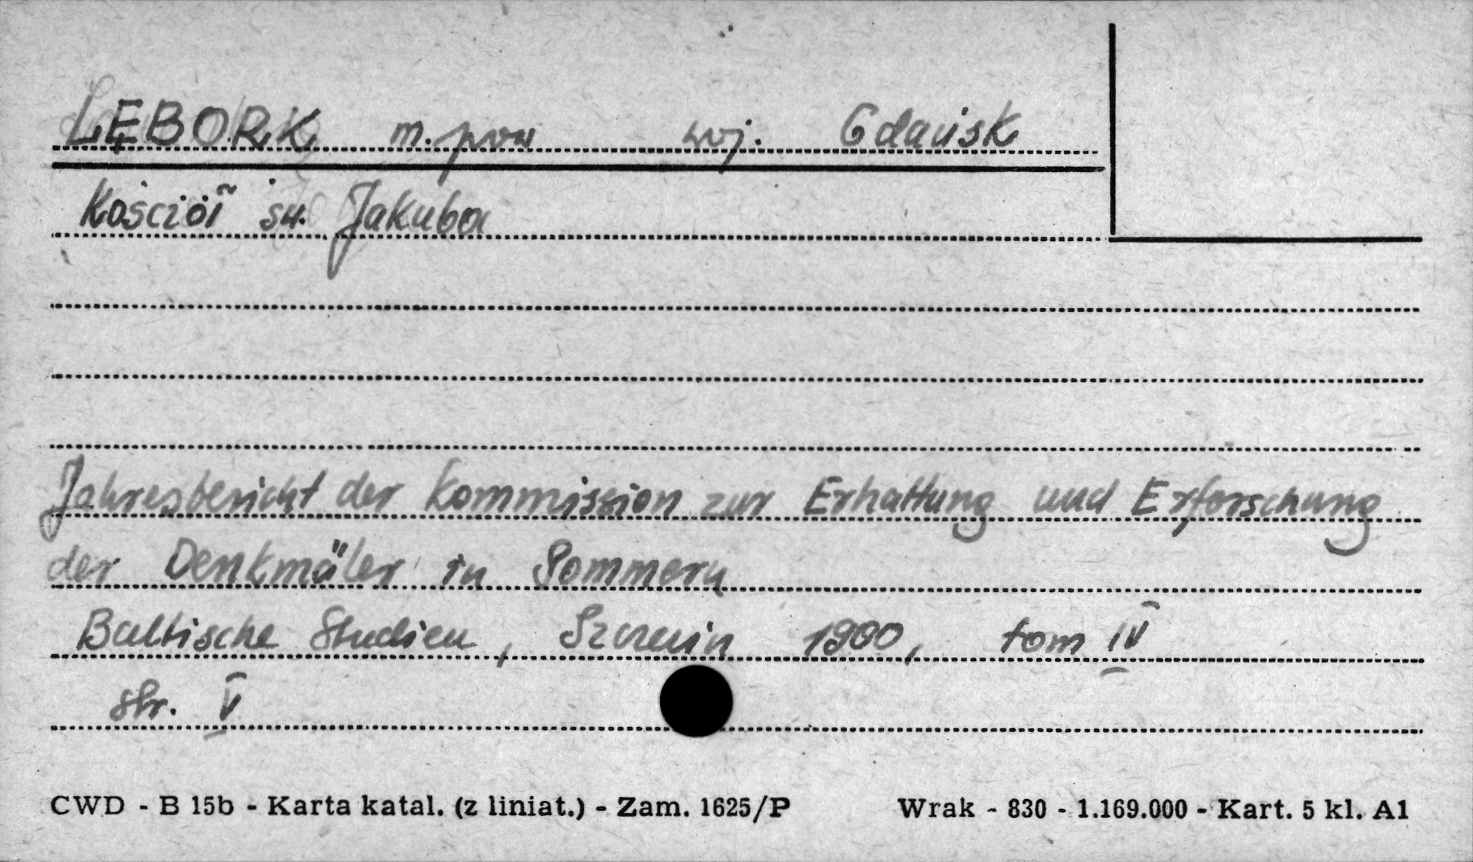 LĘBORK m. pow woj. Gdańsk
Kościół św. Jakuba
Jahresbericht der Kommission zur Erhaltung und Erforschung
der Denkmäler in Pommern
Baltische Studien, Szczecin 1900, tom IV
str. V
CWD - B 15b - Karta katal. (z liniat.) - Zam. 1625/P Wrak - 830 - 1.169.000 - Kart. 5 kl. A1